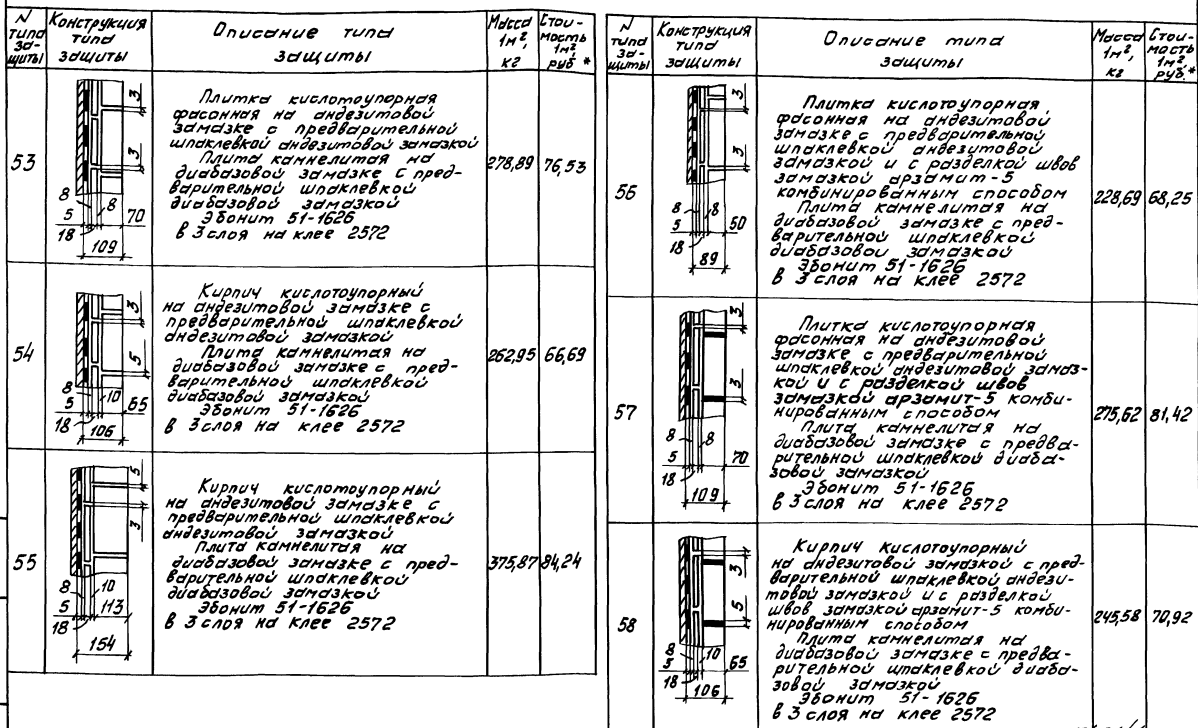 N типа защиты
Конструкция типа защиты
Описание типа защиты
Масса 1м², кг
Стоимость 1м² руб.*
53
3
3
8
8
5
70
18
109
Плитка кислотоупорная
фасонная на андезитовой
замазке с предварительной
шпаклевкой андезитовой замазкой
Плита камнелитая на
диабазовой замазке с пред-
варительной шпаклевкой
диабазовой замазкой
Эбонит 51-1626
в 3 слоя на клее 2572
278,89
76,53
54
3
5
8
10
5
65
18
106
Кирпич кислотоупорный
на андезитовой замазке с
предварительной шпаклевкой
андезитовой замазкой
Плита камнелитая на
диабазовой замазке с пред-
варительной шпаклевкой
диабазовой замазкой
Эбонит 51-1626
в 3 слоя на клее 2572
262,95
66,69
55
5
3
8
10
5
113
18
154
Кирпич кислотоупорный
на андезитовой замазке с
предварительной шпаклевкой
андезитовой замазкой
Плита камнелитая на
диабазовой замазке с пред-
варительной шпаклевкой
диабазовой замазкой
Эбонит 51-1626
в 3 слоя на клее 2572
375,87
84,24
N типа защиты
Конструкция типа защиты
Описание типа защиты
Масса 1м², кг
Стоимость 1м² руб.*
56
3
3
8
8
5
50
18
89
Плитка кислотоупорная
фасонная на андезитовой
замазке с предварительной
шпаклевкой андезитовой
замазкой и с разделкой швов
замазкой арзамит-5
комбинированным способом
Плита камнелитая на
диабазовой замазке с пред-
варительной шпаклевкой
диабазовой замазкой
Эбонит 51-1626
в 3 слоя на клее 2572
228,69
68,25
57
3
3
8
8
5
70
18
109
Плитка кислотоупорная
фасонная на андезитовой
замазке с предварительной
шпаклевкой андезитовой замаз-
кой и с разделкой швов
замазкой арзамит-5 комби-
нированным способом
Плита камнелитая на
диабазовой замазке с предва-
рительной шпаклевкой диаба-
зовой замазкой
Эбонит 51-1626
в 3 слоя на клее 2572
275,62
81,42
58
3
5
8
10
5
65
18
106
Кирпич кислотоупорный
на андезитовой замазкой с пред-
варительной шпаклевкой андези-
товой замазкой и с разделкой
швов замазкой арзамит-5 комби-
нированным способом
Плита камнелитая на
диабазовой замазке с предва-
рительной шпаклевкой диаба-
зовой замазкой
Эбонит 51-1626
в 3 слоя на клее 2572
245,58
70,92